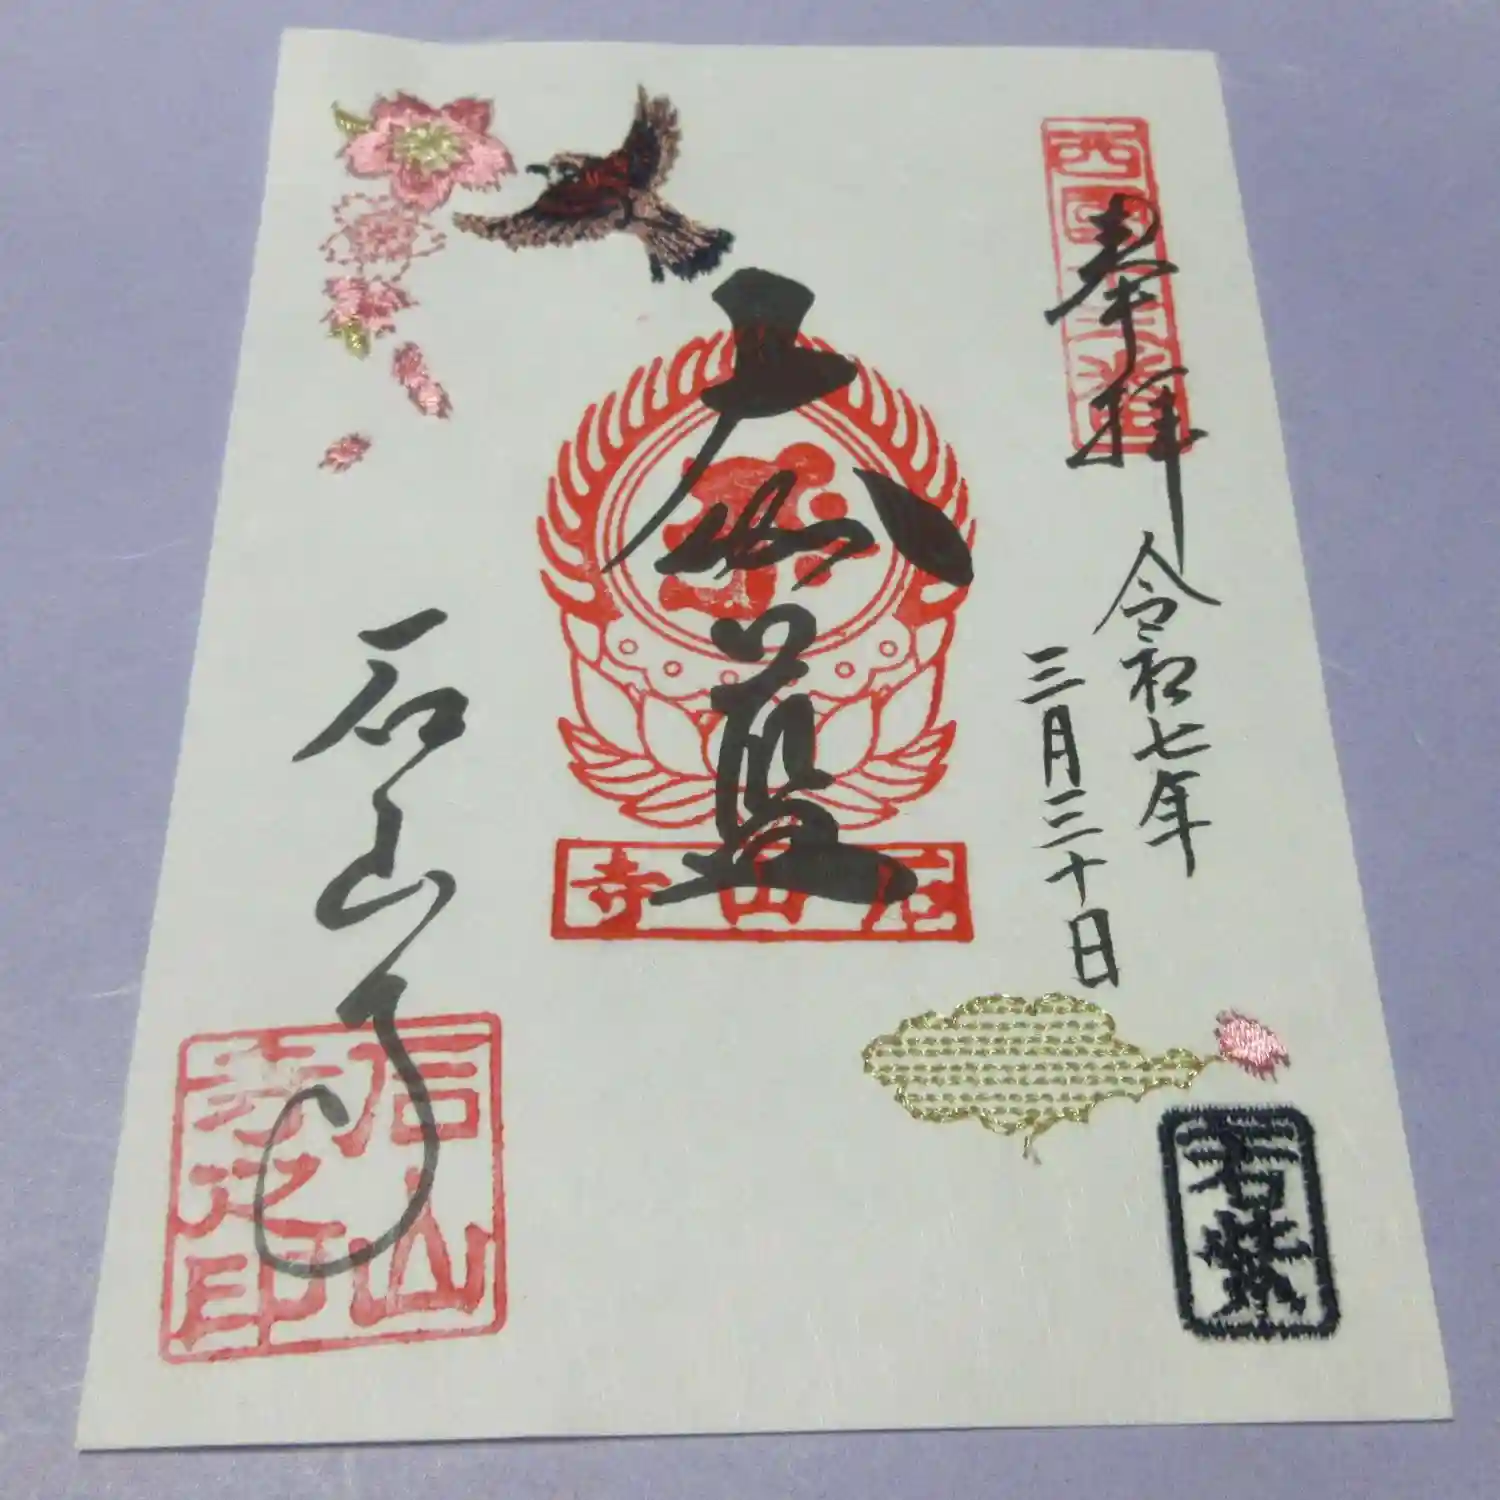 西国十三番
奉拝
令和七年
三月三十日
大伽藍
石山寺
石山寺
石山寺之印
若紫